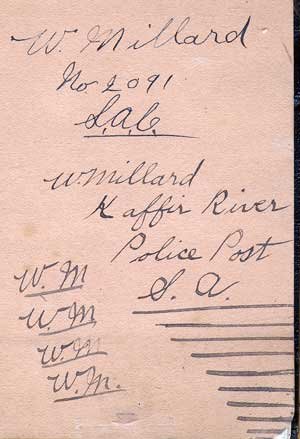 W. Millard
No 2091
S.A.C.
W. Millard
Kaffir River
Police Post
S. A.
W. M
W. M
W. M
W. M.